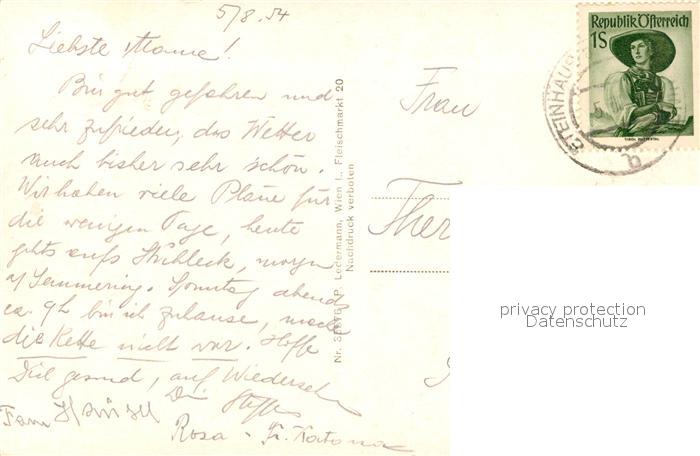 5/8.54
Liebste Mama!
Bin gut gefahren und
sehr zufrieden, das Wetter
auch bisher sehr schön.
Wir haben viele Pläne für
die wenigen Tage, heute
gehts aufs Stuhleck, morgen
a/ Semmering. Sonntag abends
ca. 9h bin ich zuhause, mache
die Kette nicht vor. Hoffe
Dich gesund, auf Wiedersehn
Dein Steffi
Fam
Rosa - Fr. Katona
Nr. P. Ledermann, Wien I., Fleischmarkt 20
Nachdruck verboten
Frau
Ther
Republik Österreich
1S
STEINHAUS
privacy protection
Datenschutz